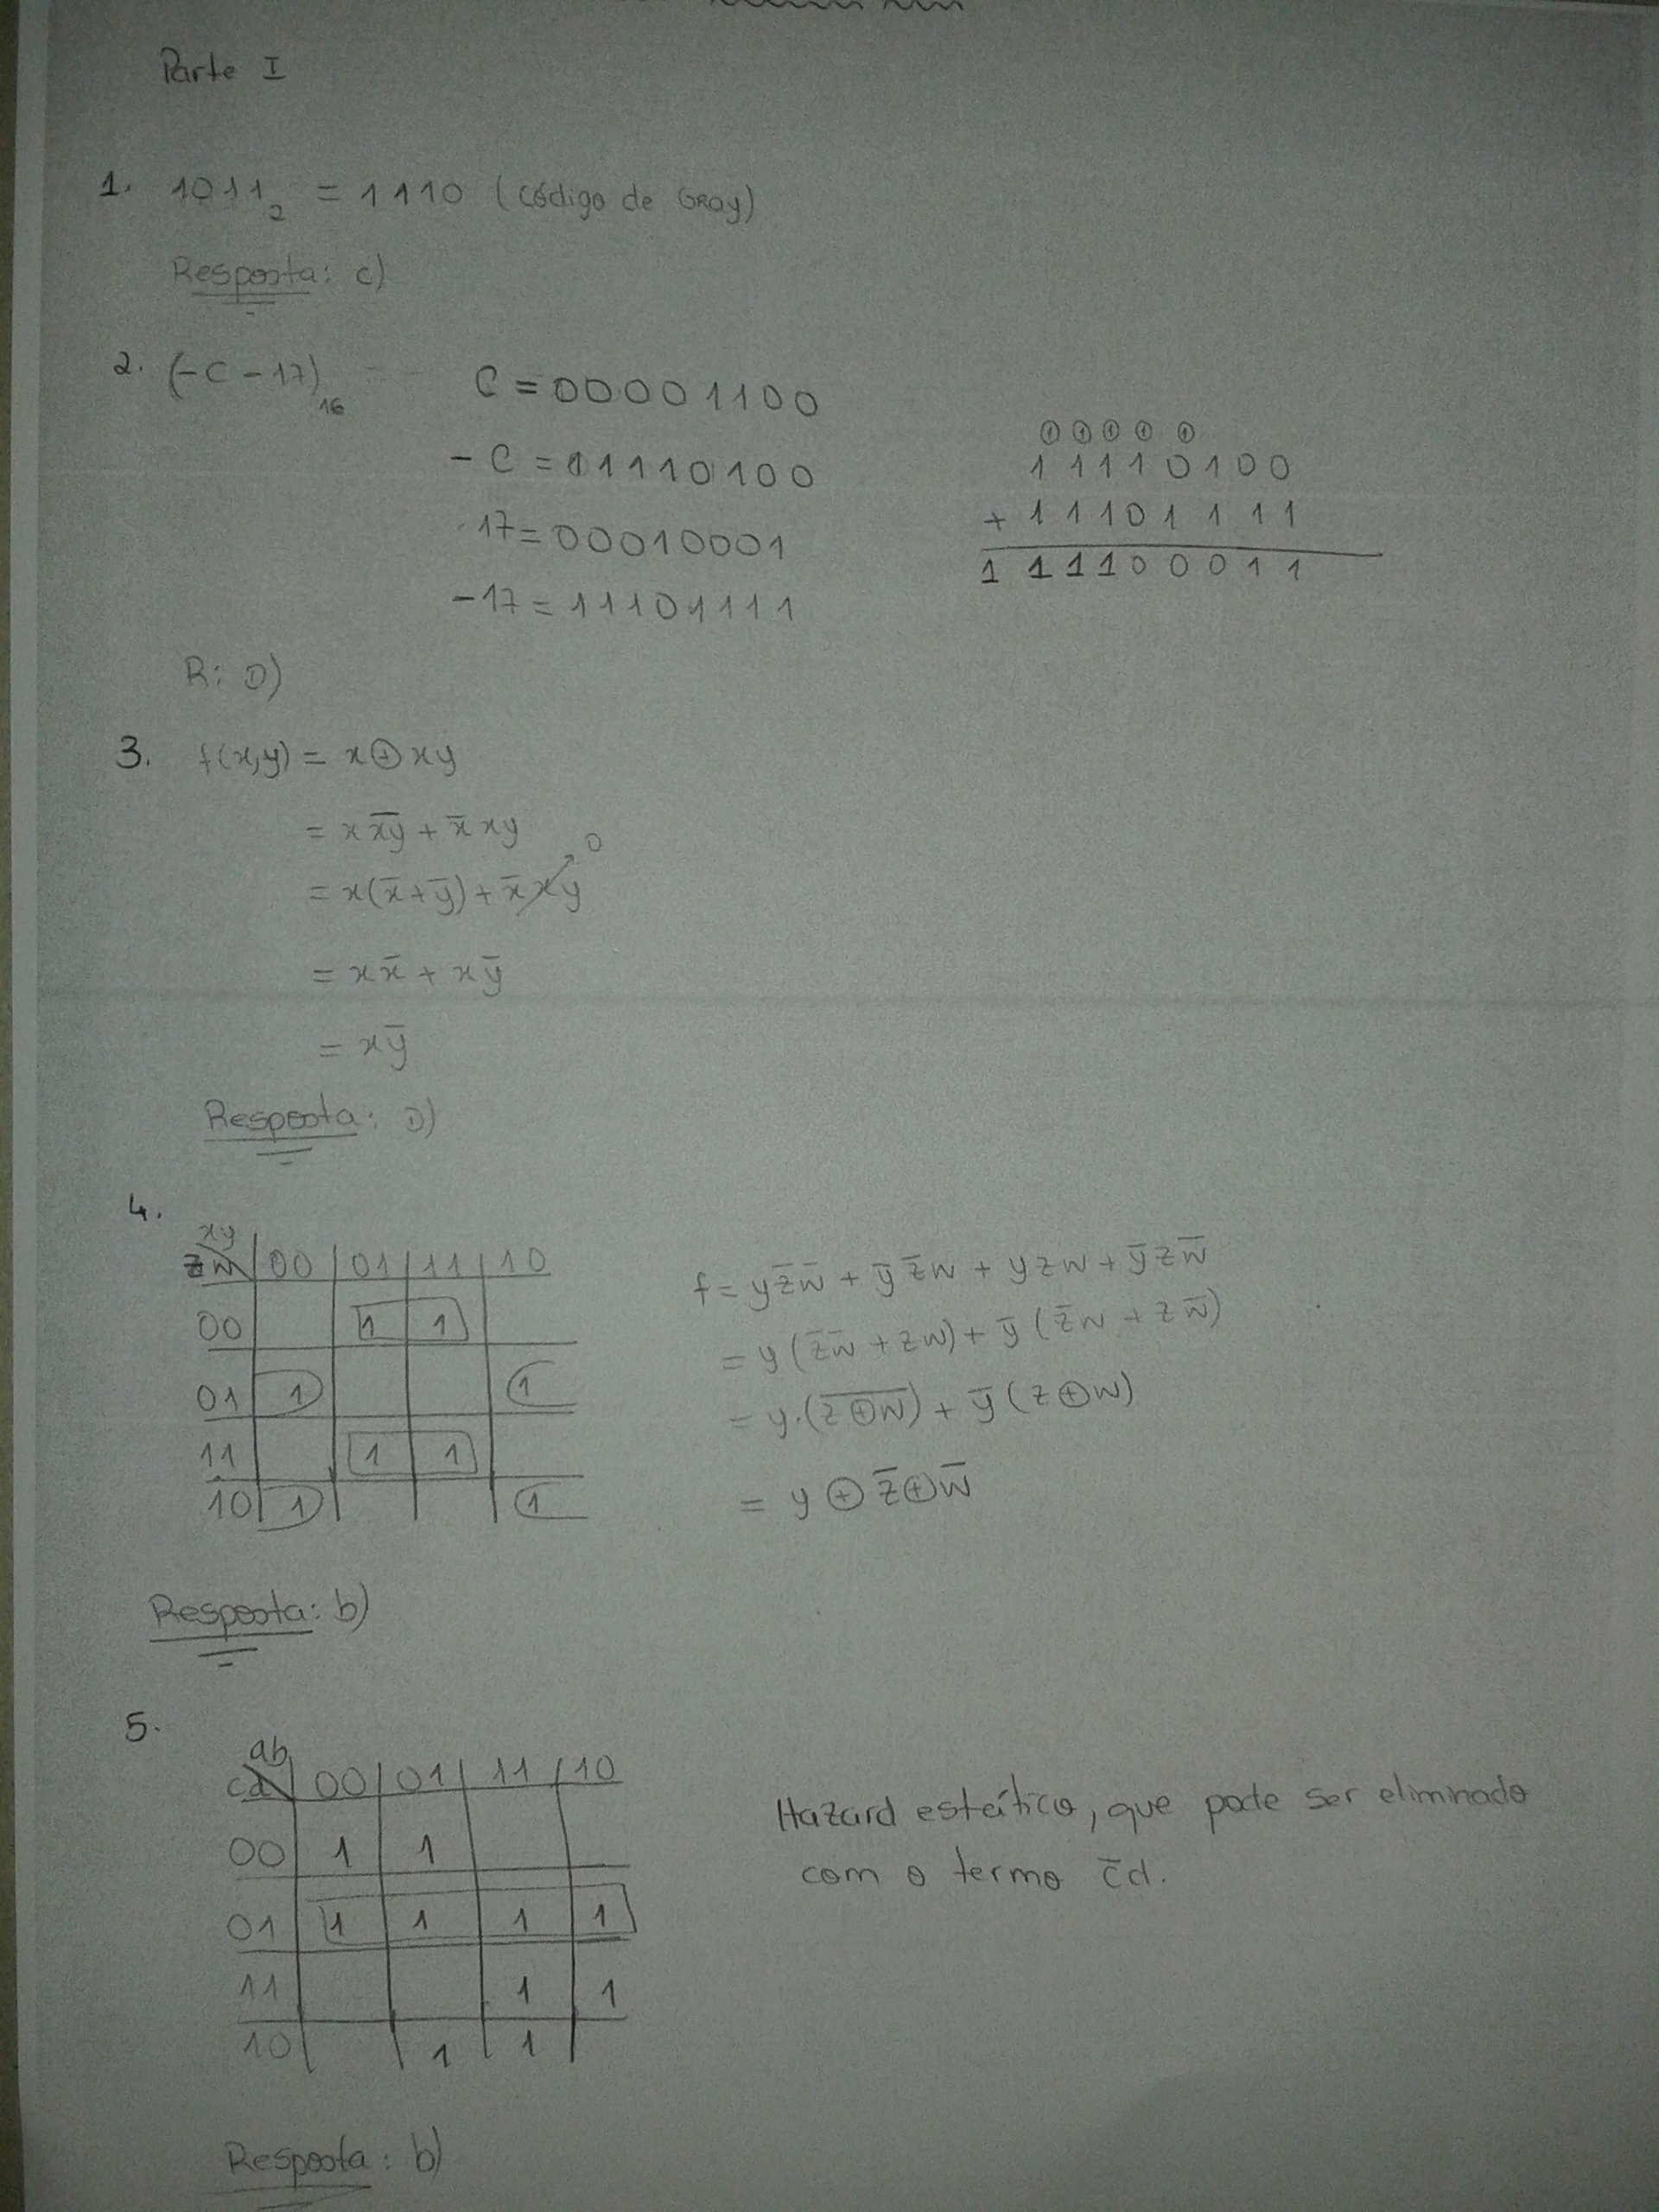 Parte I
1. 1011₂ = 1110 (código de Gray)
Resposta: c)
2. (-C - 17)₁₆
C = 00001100
- C = 11110100
17 = 00010001
-17 = 11101111
1 1 1 1 1
1 1 1 1 0 1 0 0
+ 1 1 1 0 1 1 1 1
1 1 1 1 0 0 0 1 1
R: D)
3. f(x,y) = x ⊕ xy
= x x̅y̅ + x̅ xy
= x(x̅ + y̅) + x̅xy 0
= xx̅ + xy̅
= xy̅
Resposta: D)
4.
xy
zw 00 01 11 10
00 1 1
01 1 1
11 1 1
10 1 1
f = yz̅w̅ + y̅z̅w + yzw + y̅zw̅
= y(z̅w̅ + zw) + y̅(z̅w + zw̅)
= y.(z̅⊕̅w̅) + y̅(z⊕w)
= y ⊕ z̅ ⊕ w̅
Resposta: b)
5.
ab
cd 00 01 11 10
00 1 1
01 1 1 1 1
11 1 1
10 1 1
Hazard estático, que pode ser eliminado
com o termo c̅d.
Resposta: b)